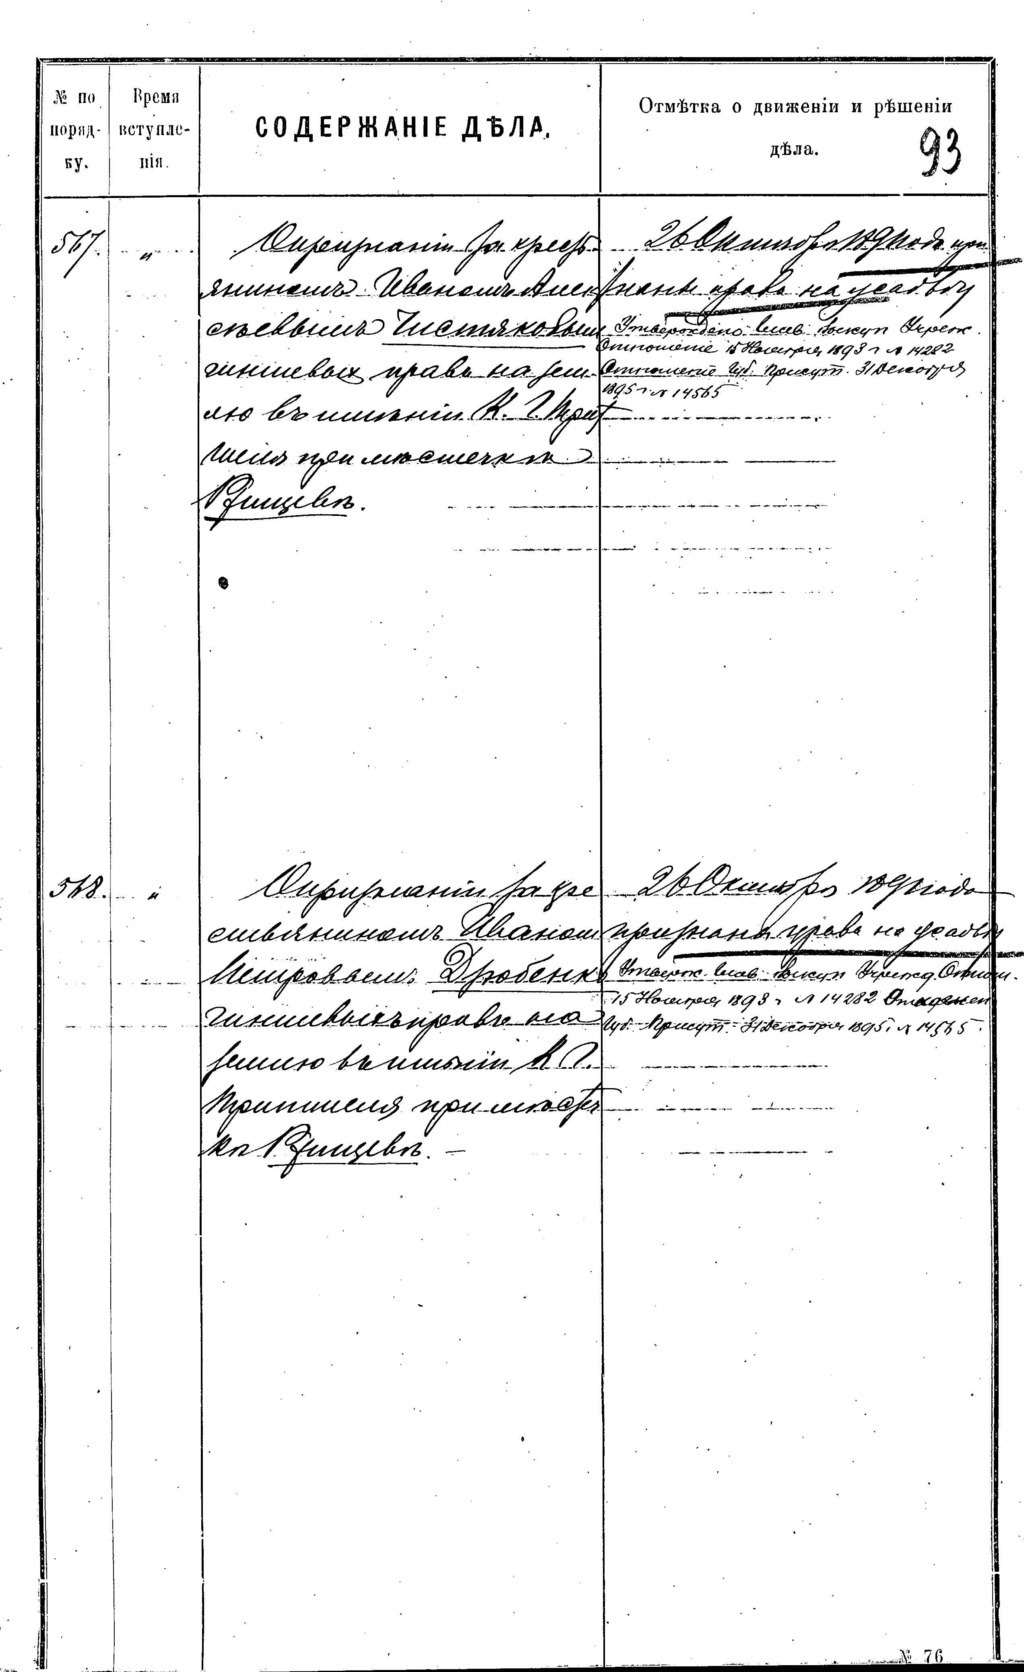 № по поряд- ку.
Время вступле- нія.
СОДЕРЖАНІЕ ДѢЛА.
Отмѣтка о движеніи и рѣшеніи дѣла.
93
567. "
О признаніи за кресть
яниномъ Иваномъ Алек
сѣевымъ Чистяковымъ
чиншевыхъ правъ на зем
лю въ имѣніи К. Г.
при мѣстечкѣ
Ржищевѣ.
26 Октября 189 года при
знаны права на усадьбу
Утверждено Глав. Выкуп. Учреж.
Отношение 15 Ноября 1893 г № 14282
Отношение Губ. Присут. 31 Декабря
1895 г № 14565
568. "
О признаніи за кре
стьяниномъ Иваномъ
Петровымъ Дзюбенко
чиншевыхъ правъ на
землю въ имѣніи К. Г.
при мѣстеч
кѣ Ржищевѣ. —
26 Октября 189 года
признаны права на усадьбу
Утверж. Глав. Выкуп. Учрежд. Отнош.
15 Ноября 1893 г № 14282
Губ. Присут. 31 Декабря 1895 г № 14565.
№ 76